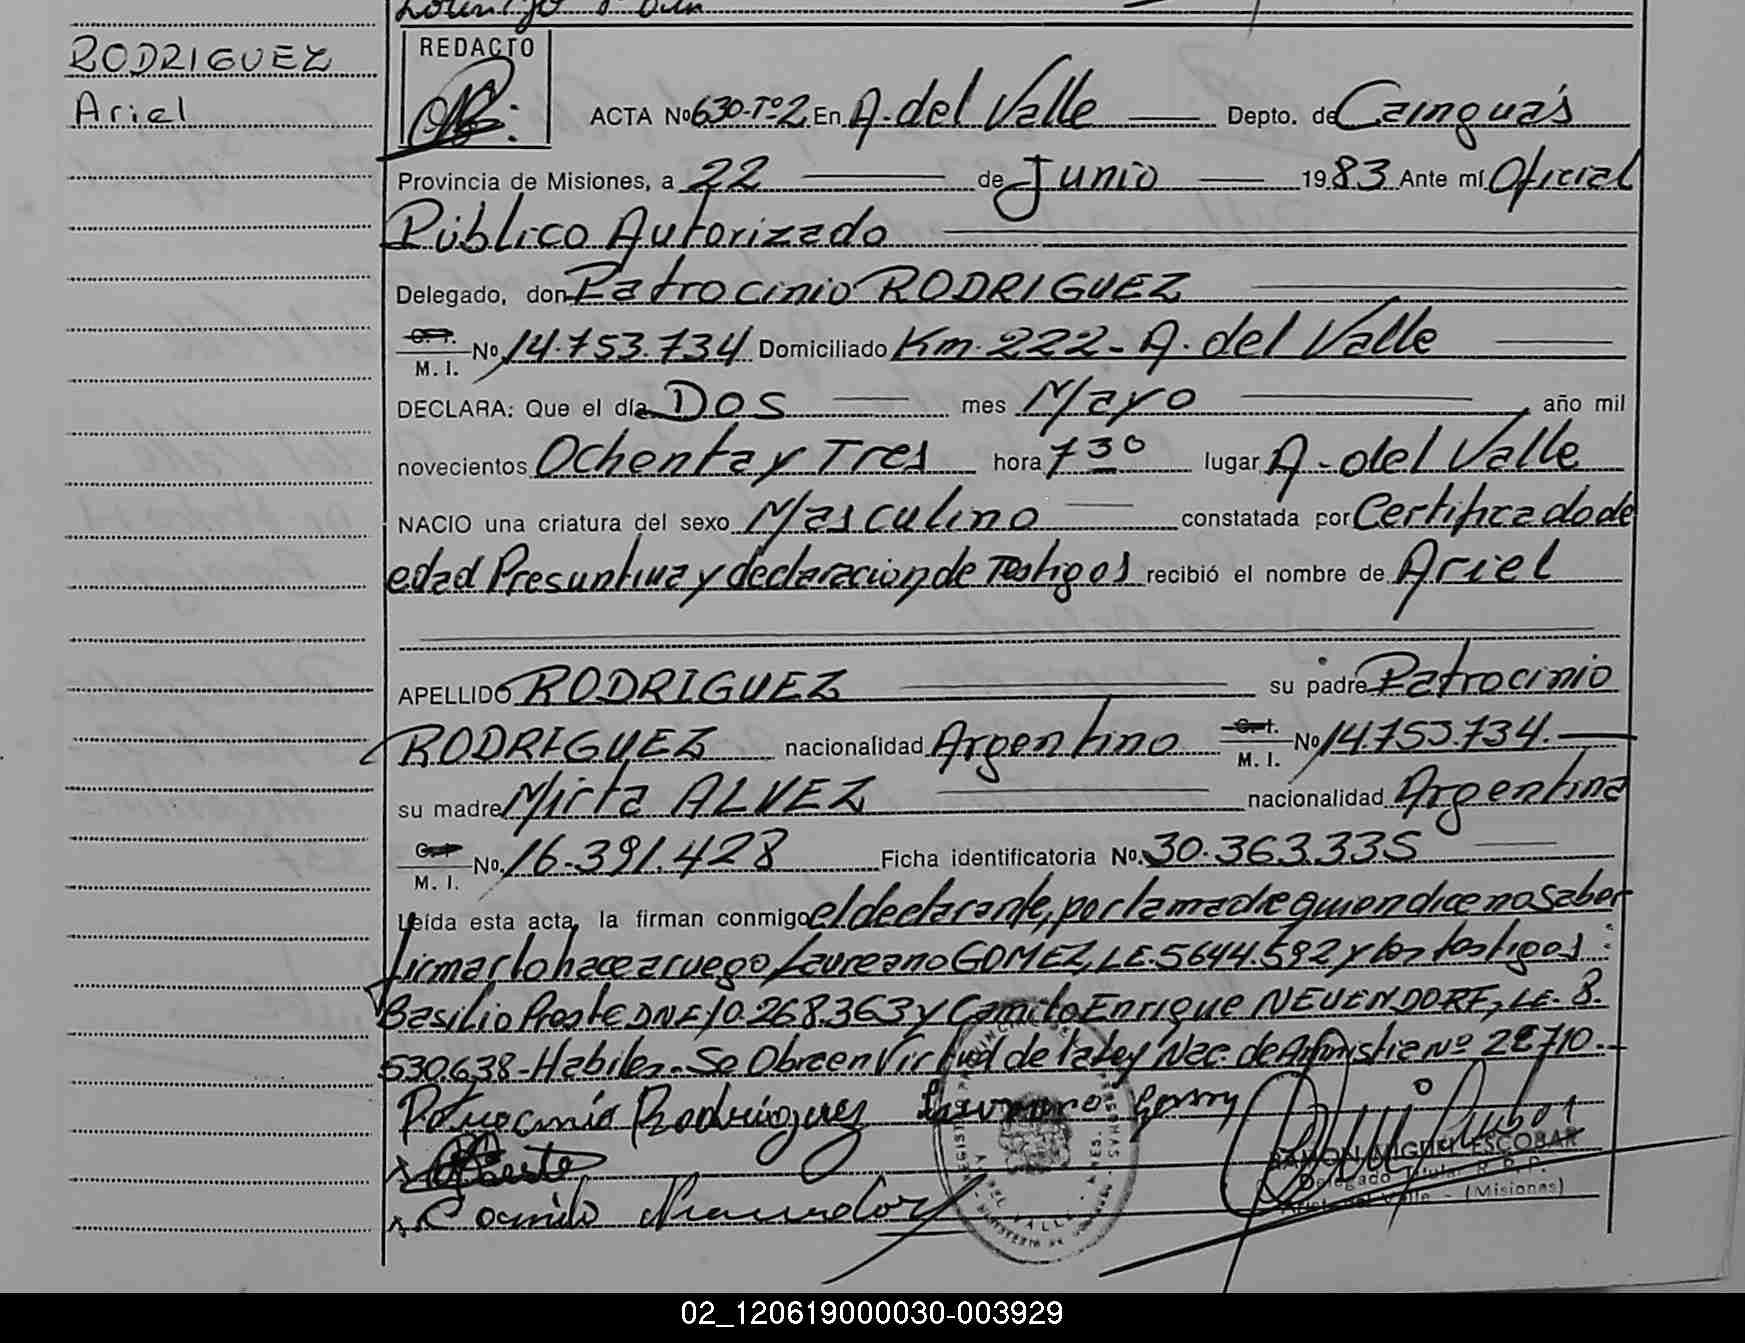 RODRIGUEZ
Ariel
REDACTO
ACTA Nº 630-Tº2 En A. del Valle Depto. de Cainguás
Provincia de Misiones, a 22 de Junio 1983 Ante mí Oficial
Público Autorizado
Delegado, don Patrocinio RODRIGUEZ
M. I. Nº 14.753.734 Domiciliado Km. 222 - A. del Valle
DECLARA: Que el día Dos mes Mayo año mil
novecientos Ochenta y Tres hora 7 30 lugar A. del Valle
NACIO una criatura del sexo Masculino constatada por Certificado de
edad Presuntiva y declaracion de Testigos recibió el nombre de Ariel
APELLIDO RODRIGUEZ su padre Patrocinio
RODRIGUEZ nacionalidad Argentino M. I. Nº 14.753.734.
su madre Mirta ALVEZ nacionalidad Argentina
M. I. No. 16.391.428 Ficha identificatoria Nº. 30.363.335
Leída esta acta, la firman conmigo el declarante, por la madre quien dice no saber
firmar lo hace a ruego Laureano GOMEZ, LE. 5644.592 y los testigos:
Basilio Proste DNI 10.268.363 y Camilo Enrique NEUENDORF, LE. 8.
530.638 - Habiles. - Se Obra en Virtud de la Ley Nac. de Amnistia Nº 22710. -
Patrocinio Rodriguez
Camilo
RAMON MIGUEL ESCOBAR
Delegado Titular R. P. P.
del Valle - (Misiones)
02_120619000030-003929